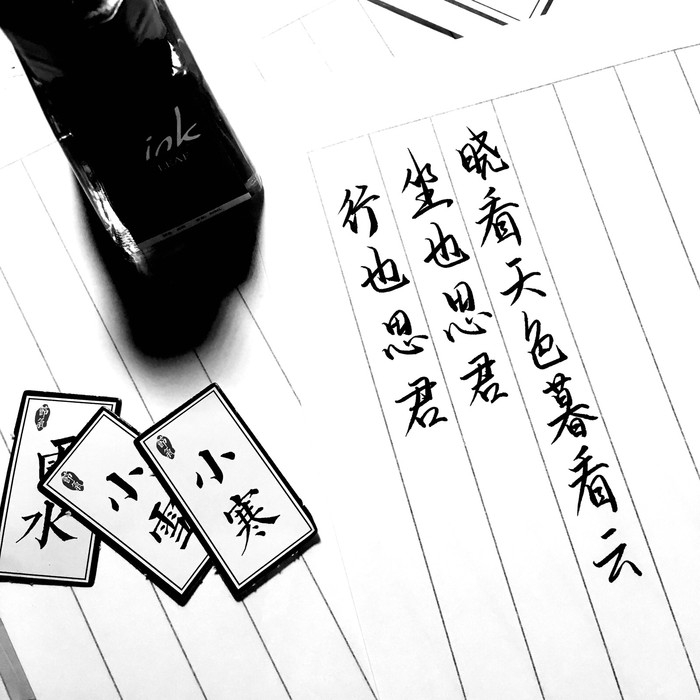 晓看天色暮看云
坐也思君
行也思君
ink
LEAF
雨水
小雪
小寒